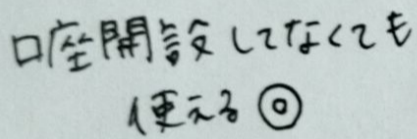 口座開設してなくても
使える◎